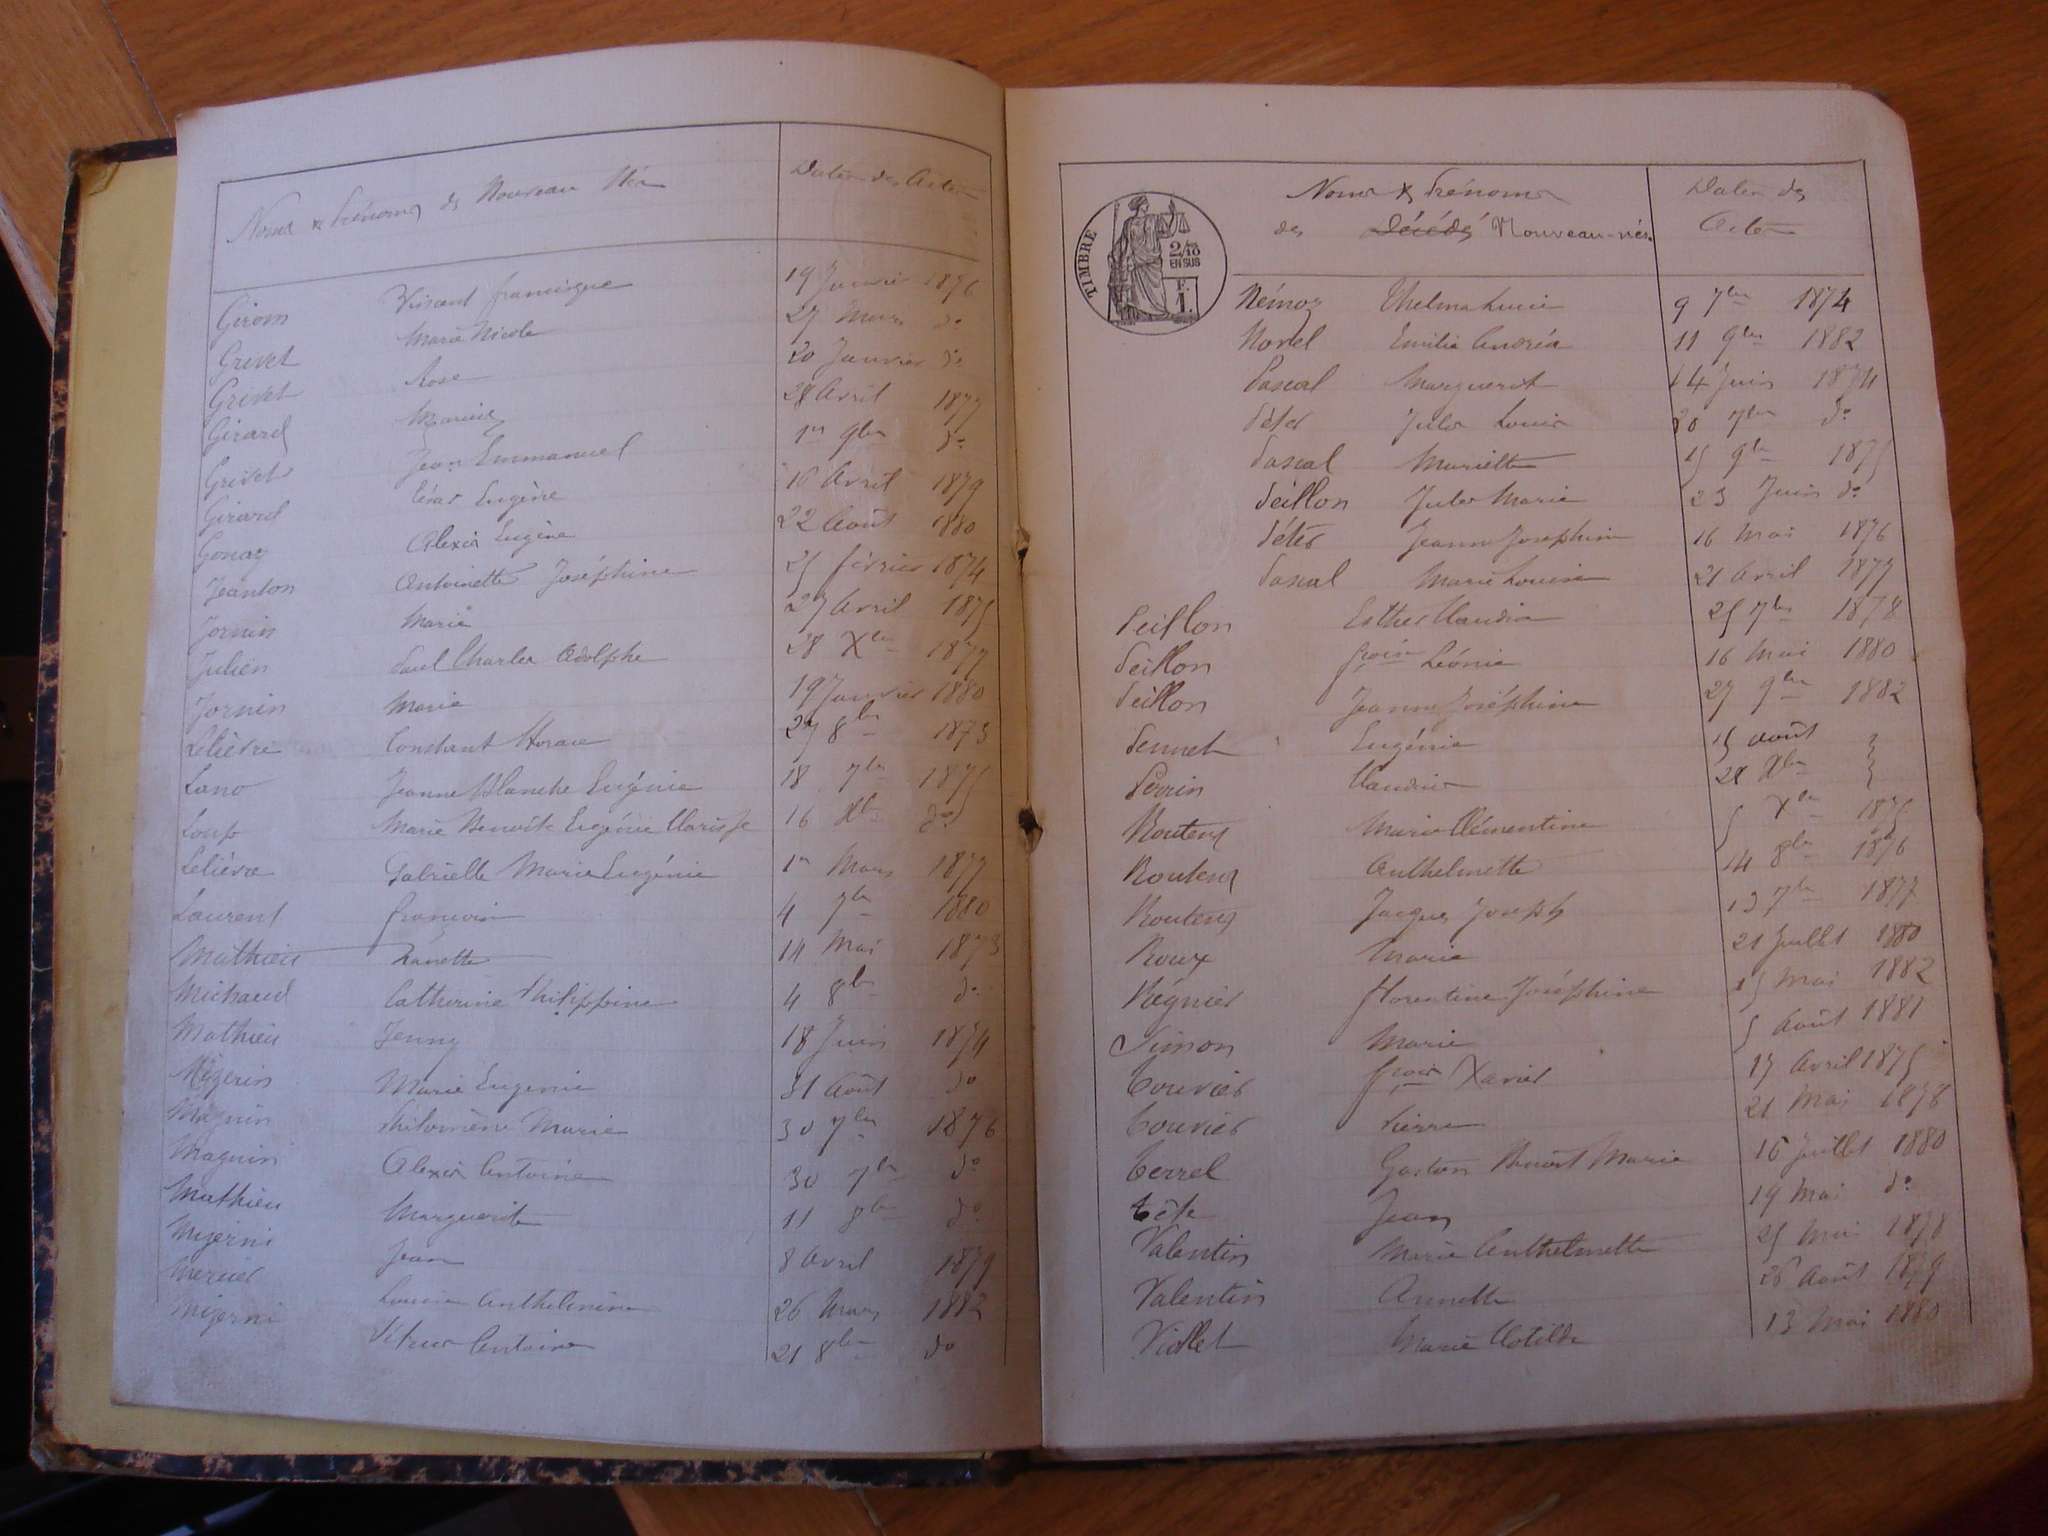 Noms & Prénoms des Nouveau Nés Dates des Actes
Girom Vincent francisque 19 Janvier 1876
Grevet Marie Nicole 27 Mars do
Grivet Rose 20 Janvier do
Girard Marius 28 Avril 1877
Grivet Jean Emmanuel 1er 9bre do
Girard César Eugène 16 Avril 1879
Gonaz Alexis Eugène 22 Août 1880
Jeanton Antoinette Joséphine 25 février 1874
Jornin Marie 27 Avril 1875
Julien Paul Charles Adolphe 28 Xbre 1877
Jornin Marie 19 Janvier 1880
Lelièvre Constant Horace 27 8bre 1873
Lano Jeanne Blanche Eugénie 18 7bre 1875
Loup Marie Benoite Eugénie Clarisse 16 Xbre do
Lelièvre Gabrielle Marie Eugénie 1er Mars 1877
Laurent francois 4 7bre 1880
Mathieu 14 Mai 1873
Michaud Catherine Philippine 4 8bre do
Mathieu Jenny 18 Juin 1874
Migerin Marie Eugenie 31 Août do
Magnin Philomène Marie 30 7bre 1876
Magnin Alexis Antoine 30 7bre do
Mathieu Marguerite 11 8bre do
Mijerni Jean 8 Avril 1879
Mercier Anthelmine 26 Mars 1882
Mijerni Antoine 21 8bre do
TIMBRE
2/10
EN SUS
F.
1.
Noms & Prénoms Dates des
des Décédés Nouveau-nés. Actes
Némoz Thelma Lucie 9 7bre 1874
Novel Emilie Andréa 11 9bre 1882
Pascal Marguerit 14 Juin 1874
Péter Jules Louis 20 7bre do
Pascal Mariette 15 9bre 1875
Peillon Jules Marie 23 Juin do
Péter Jeanne Joséphine 16 Mai 1876
Pascal Marie Louise 21 Avril 1877
Peillon Esther Claudia 25 7bre 1878
Peillon froise Léonie 16 Mai 1880
Peillon Jeanne Joséphine 27 9bre 1882
Pernet Eugénie 15 août
Perrin Claudius 28 Xbre
Routens Marie Clémentine 5 Xbre 1875
Routens Anthelmette 14 8bre 1876
Routens Jacques Joseph 13 7bre 1877
Roux Marie 21 Juillet 1880
Régnier florentine Joséphine 15 Mai 1882
Simon Marie 5 Août 1881
Touvier frois Xavier 17 Avril 1875
Touvier Pierre 21 Mai 1878
Terrel Gaston Benoît Marie 16 Juillet 1880
Tête Jean 19 Mai do
Valentin Marie Anthelmette 25 Mai 1878
Valentin Annette 26 Août 1879
Viollet Marie Clotilde 13 Mai 1880